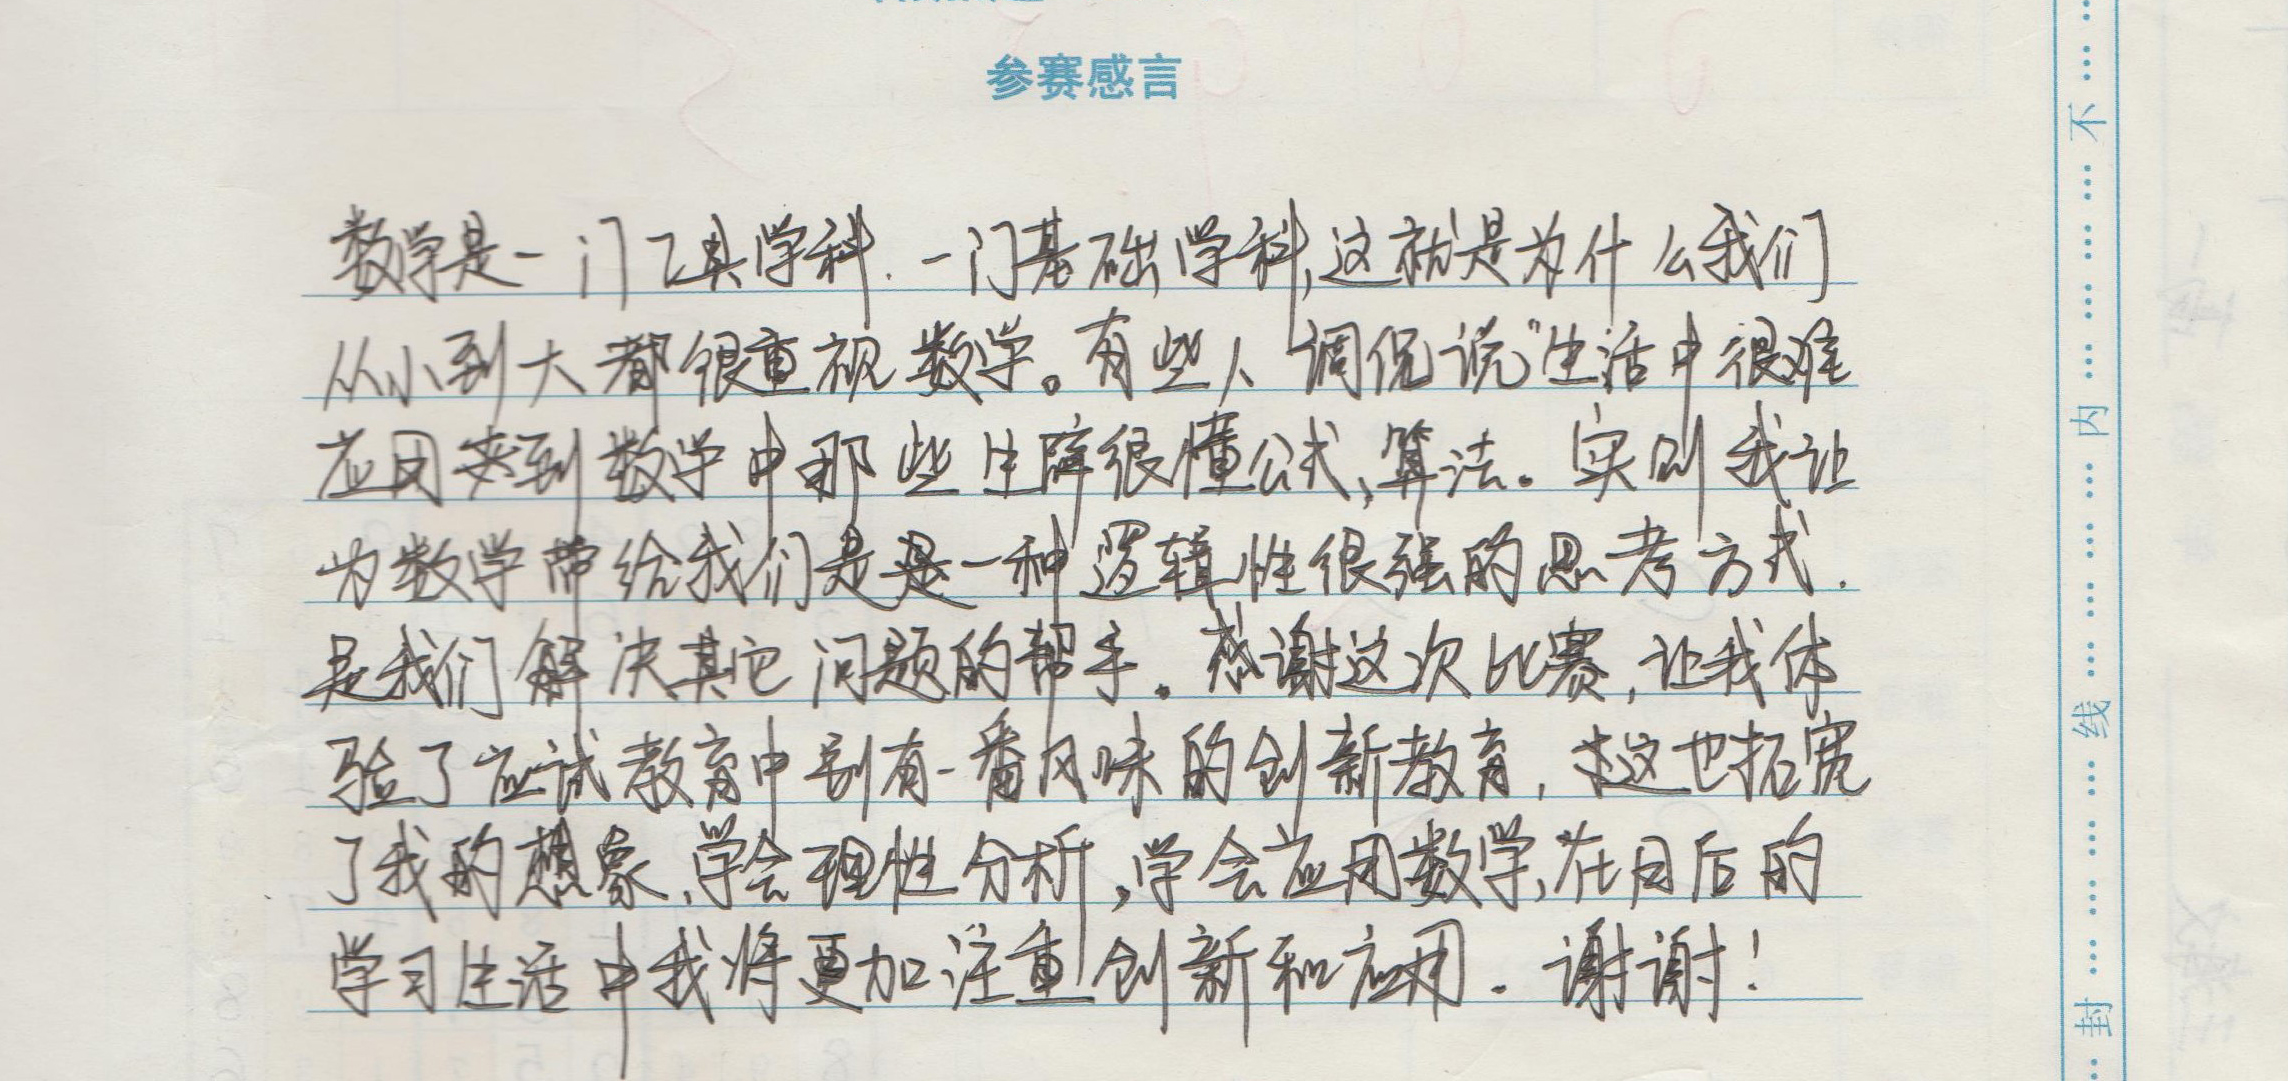 参赛感言
数学是一门工具学科.一门基础学科,这就是为什么我们
从小到大都很重视数学。有些人调侃说"生活中很难
应用来到数学中那些生僻很懂公式,算法。实则我认
为数学带给我们是是一种逻辑性很强的思考方式.
是我们解决其它问题的帮手。感谢这次比赛,让我体
验了应试教育中别有一番风味的创新教育,这也拓宽
了我的想象,学会理性分析,学会应用数学,在日后的
学习生活中我将更加注重创新和应用.谢谢!
封 线 内 不